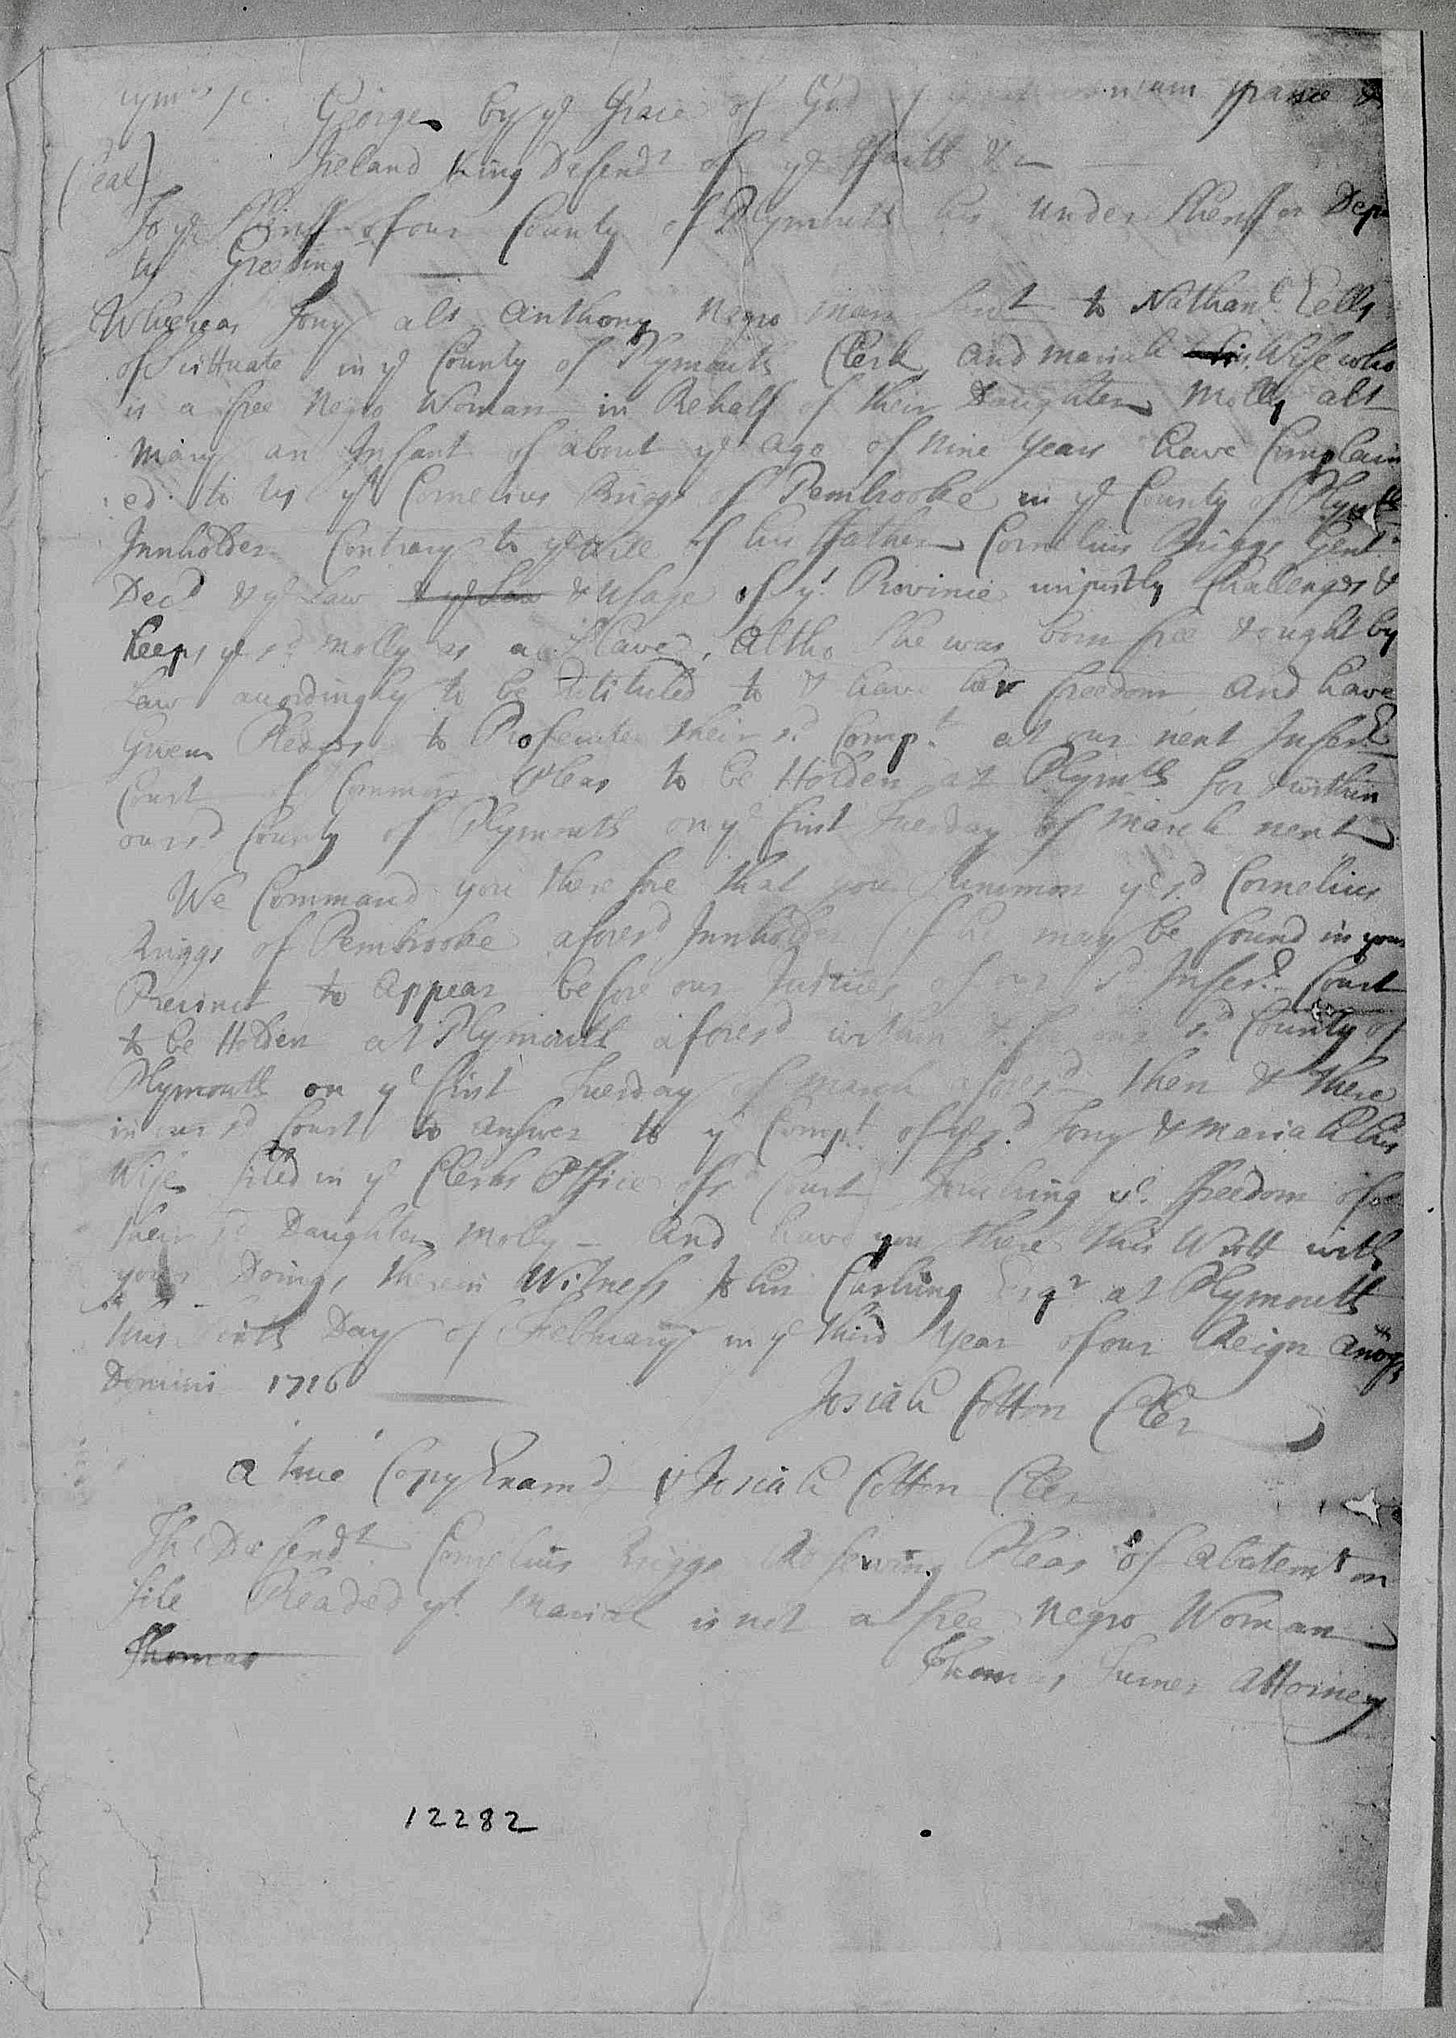 George by ye Grace of God of France &
(Seal) Ireland King Defendr of ye Faith &c
To ye Sheriff of our County of Plymouth his under Sheriff or Depu
ty Greeting
Whereas Tony als Anthony Negro man Servt to Nathanel Eells
of Scittuate in ye County of Plymouth Clerk, and Mariah his Wife who
is a free Negro Woman in Behalf of their Daughter Molly als
Mary an Infant of about ye age of nine years have Complain
ed to us yt Cornelius Briggs of Pembrooke in ye County of Plymth
Innholder Contrary to ye Will of his Father Cornelius Briggs Gent
Decd & ye Law & ye Law & Usage of ys Province unjustly Challenges &
keeps ye sd Molly as a Slave, altho she was born free & ought by
Law accordingly to be Intituled to & have her freedom, and have
Given Pledges to Prosecute their sd Compt at our next Inferr
Court of Common Pleas to be Holden at Plymth for & within
our sd County of Plymouth on ye first Tuesday of March next
We Command you therefore that you Summon ye sd Cornelius
Briggs of Pembrooke aforesd Innholder (if he may be found in your
Precinct to appear before our Justices of our sd Inferr Court
to be Holden at Plymouth aforesd within & for our sd County of
Plymouth on ye first Tuesday of March aforesd then & there
in our sd Court to answer to ye Compt of ye sd Tony & Mariah his
Wife filed in ye Clerks Office of sd Court Touching ye freedom of
their sd Daughter Molly – and have you there this Writt with
your Doings therein Witness John Cushing Esqr at Plymouth
this Day of February in ye third year of our Reign Annoq
Domini 1716
Josiah Cotton Cler
a true Copy Examd p Josiah Cotton Cler
The Defendt Cornelius Briggs Reserving Pleas of abatemt on
file Pleaded yt Mariah is not a free Negro Woman
Thomas Thomas Turner Attorney
12282